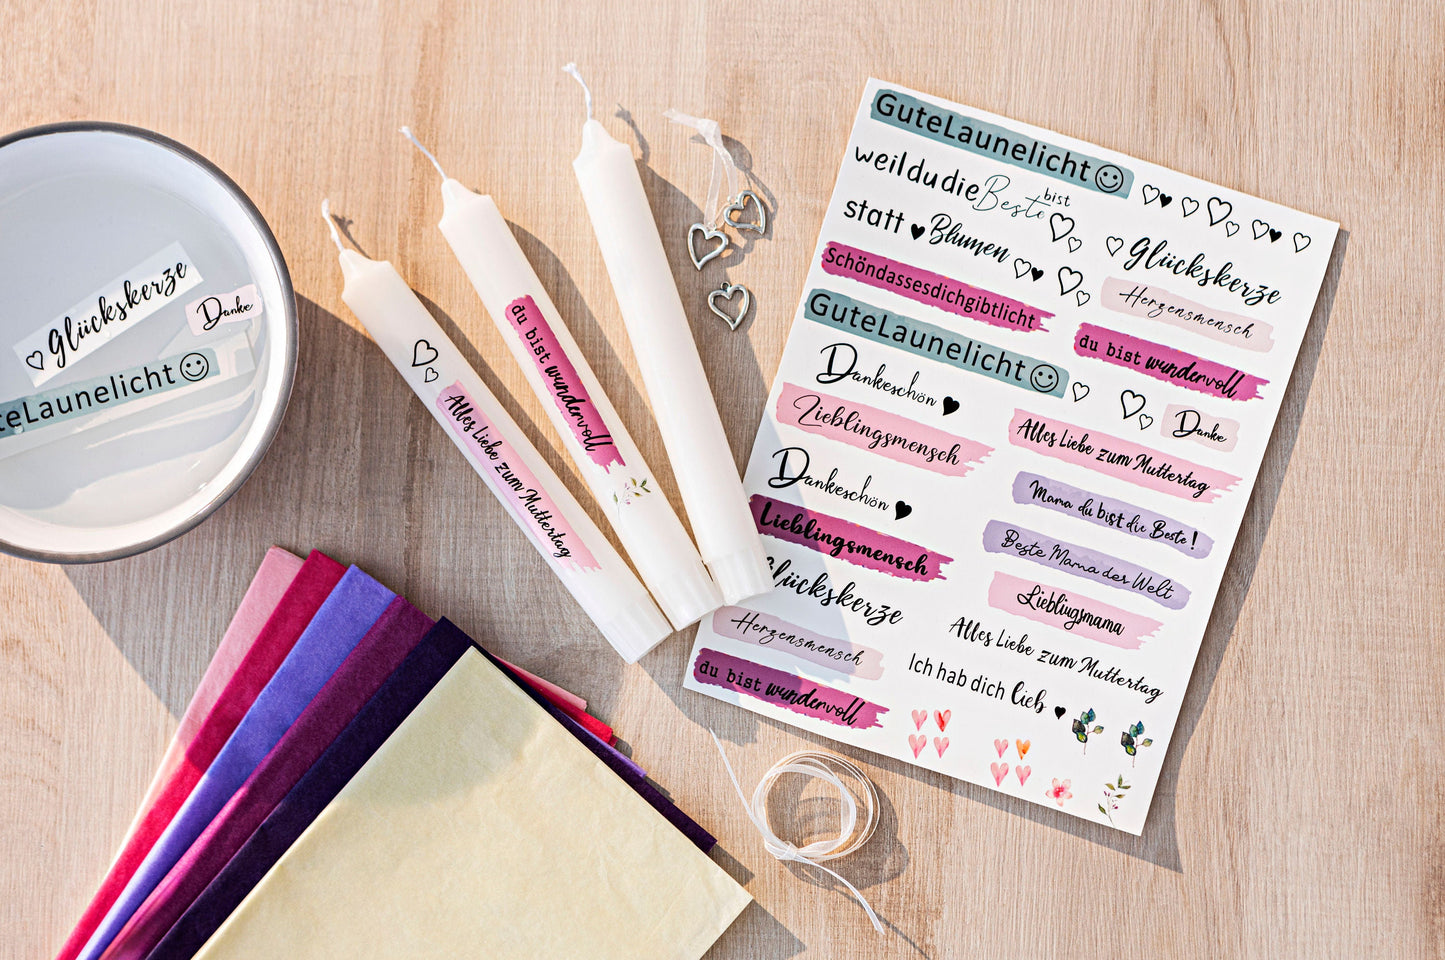 Glückskerze
Danke
teLaunelicht
Alles Liebe zum Muttertag
du bist wundervoll
GuteLaunelicht
weildudie Beste bist
statt Blumen
Schöndassesdichgibtlicht
GuteLaunelicht
Dankeschön
Lieblingsmensch
Dankeschön
Lieblingsmensch
lückskerze
Herzensmensch
du bist wundervoll
Glückskerze
Herzensmensch
du bist wundervoll
Danke
Alles Liebe zum Muttertag
Mama du bist die Beste!
Beste Mama der Welt
Lieblingsmama
Alles Liebe zum Muttertag
Ich hab dich lieb